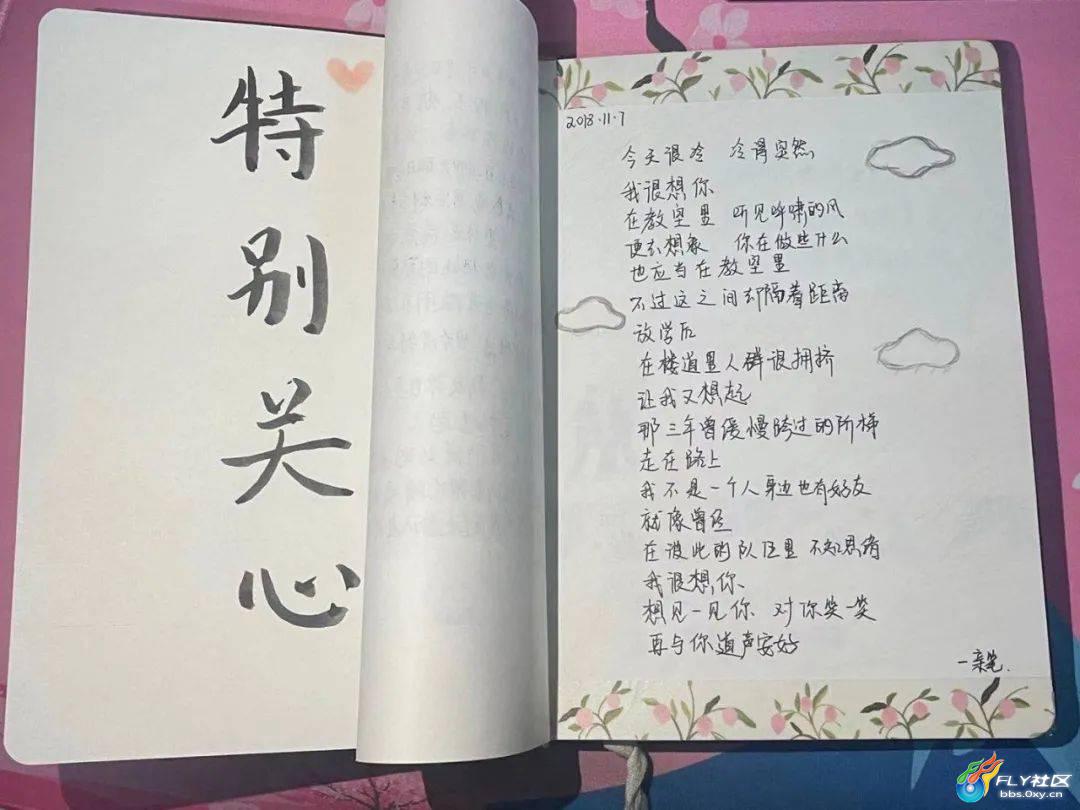 特别关心
2018.11.7
今天很冷 冷得突然
我很想你
在教室里 听见呼啸的风
便去想象 你在做些什么
也应当在教室里
不过这之间却隔着距离
放学后
在楼道里人群很拥挤
让我又想起
那三年曾缓慢跨过的阶梯
走在路上
我不是一个人 身边也有好友
就像曾经
在彼此的队伍里 不知思绪
我很想你、
想见一见你 对你笑一笑
再与你道声安好
一亲笔.
FLY社区
bbs.0xy.cn